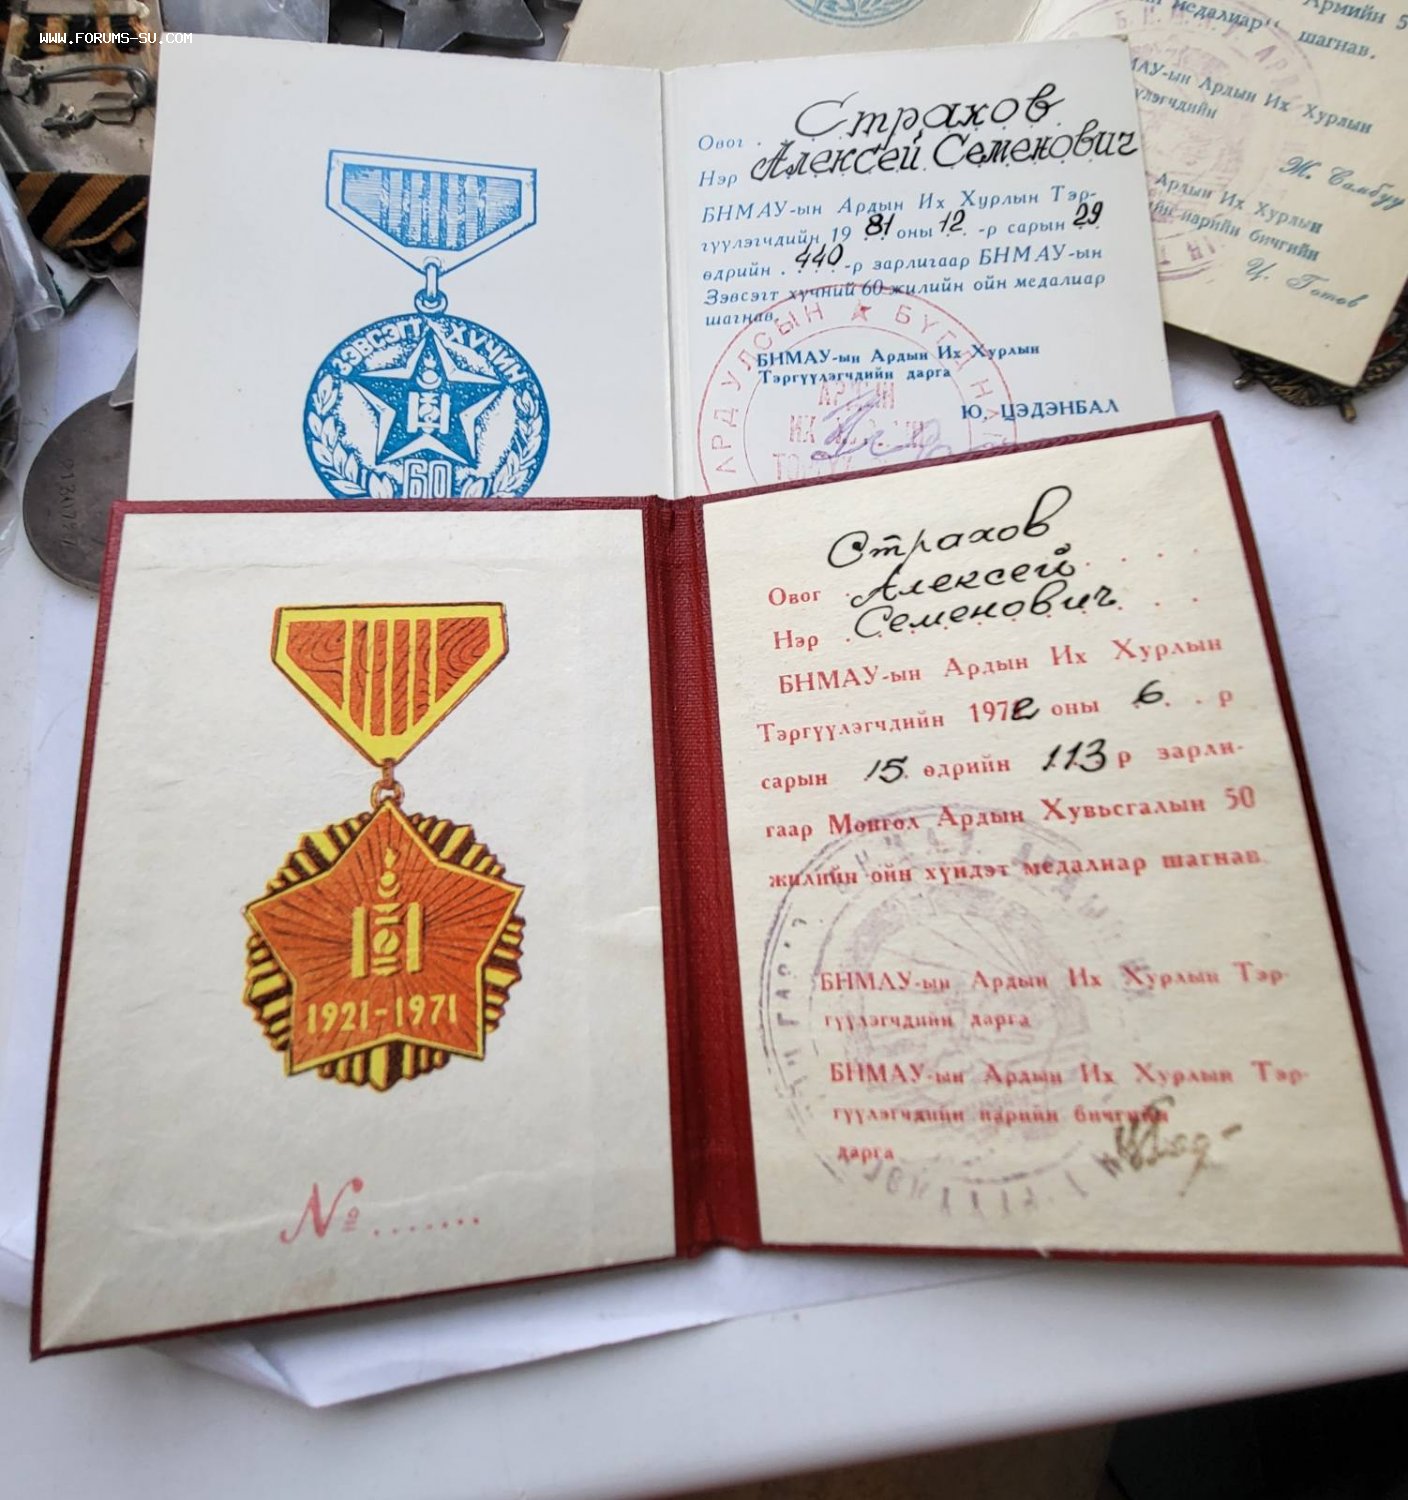 WWW.FORUMS-SU.COM
Армийн 5
медалиар" шагнав.
МАУ-ын Ардын Их Хурлын
үүлэгчдийн
Ж. Самбуу
Ардын Их Хурлын
нарийн бичгийн
Ц. Готов
ЗЭВСЭГТ ХҮЧИН
60
Страхов
Овог
Алексей Семенович
Нэр
БНМАУ-ын Ардын Их Хурлын Тэр-
гүүлэгчдийн 19 81 оны 12 -р сарын 29
өдрийн 440 -р зарлигаар БНМАУ-ын
Зэвсэгт хүчний 60 жилийн ойн медалиар
шагнав.
БНМАУ-ын Ардын Их Хурлын
Тэргүүлэгчдийн дарга
Ю. ЦЭДЭНБАЛ
АРД УЛСЫН ★ БҮГД НА
АРДЫН
ИХ
1921-1971
№.......
Страхов
Овог Алексей
Нэр Семенович
БНМАУ-ын Ардын Их Хурлын
Тэргүүлэгчдийн 1972 оны 6. р
сарын 15. өдрийн 113 р зарли-
гаар Монгол Ардын Хувьсгалын 50
жилийн ойн хүндэт медалиар шагнав.
БНМАУ-ын Ардын Их Хурлын Тэр-
гүүлэгчдийн дарга
БНМАУ-ын Ардын Их Хурлын Тэр-
гүүлэгчдийн нарийн бичгийн
дарга